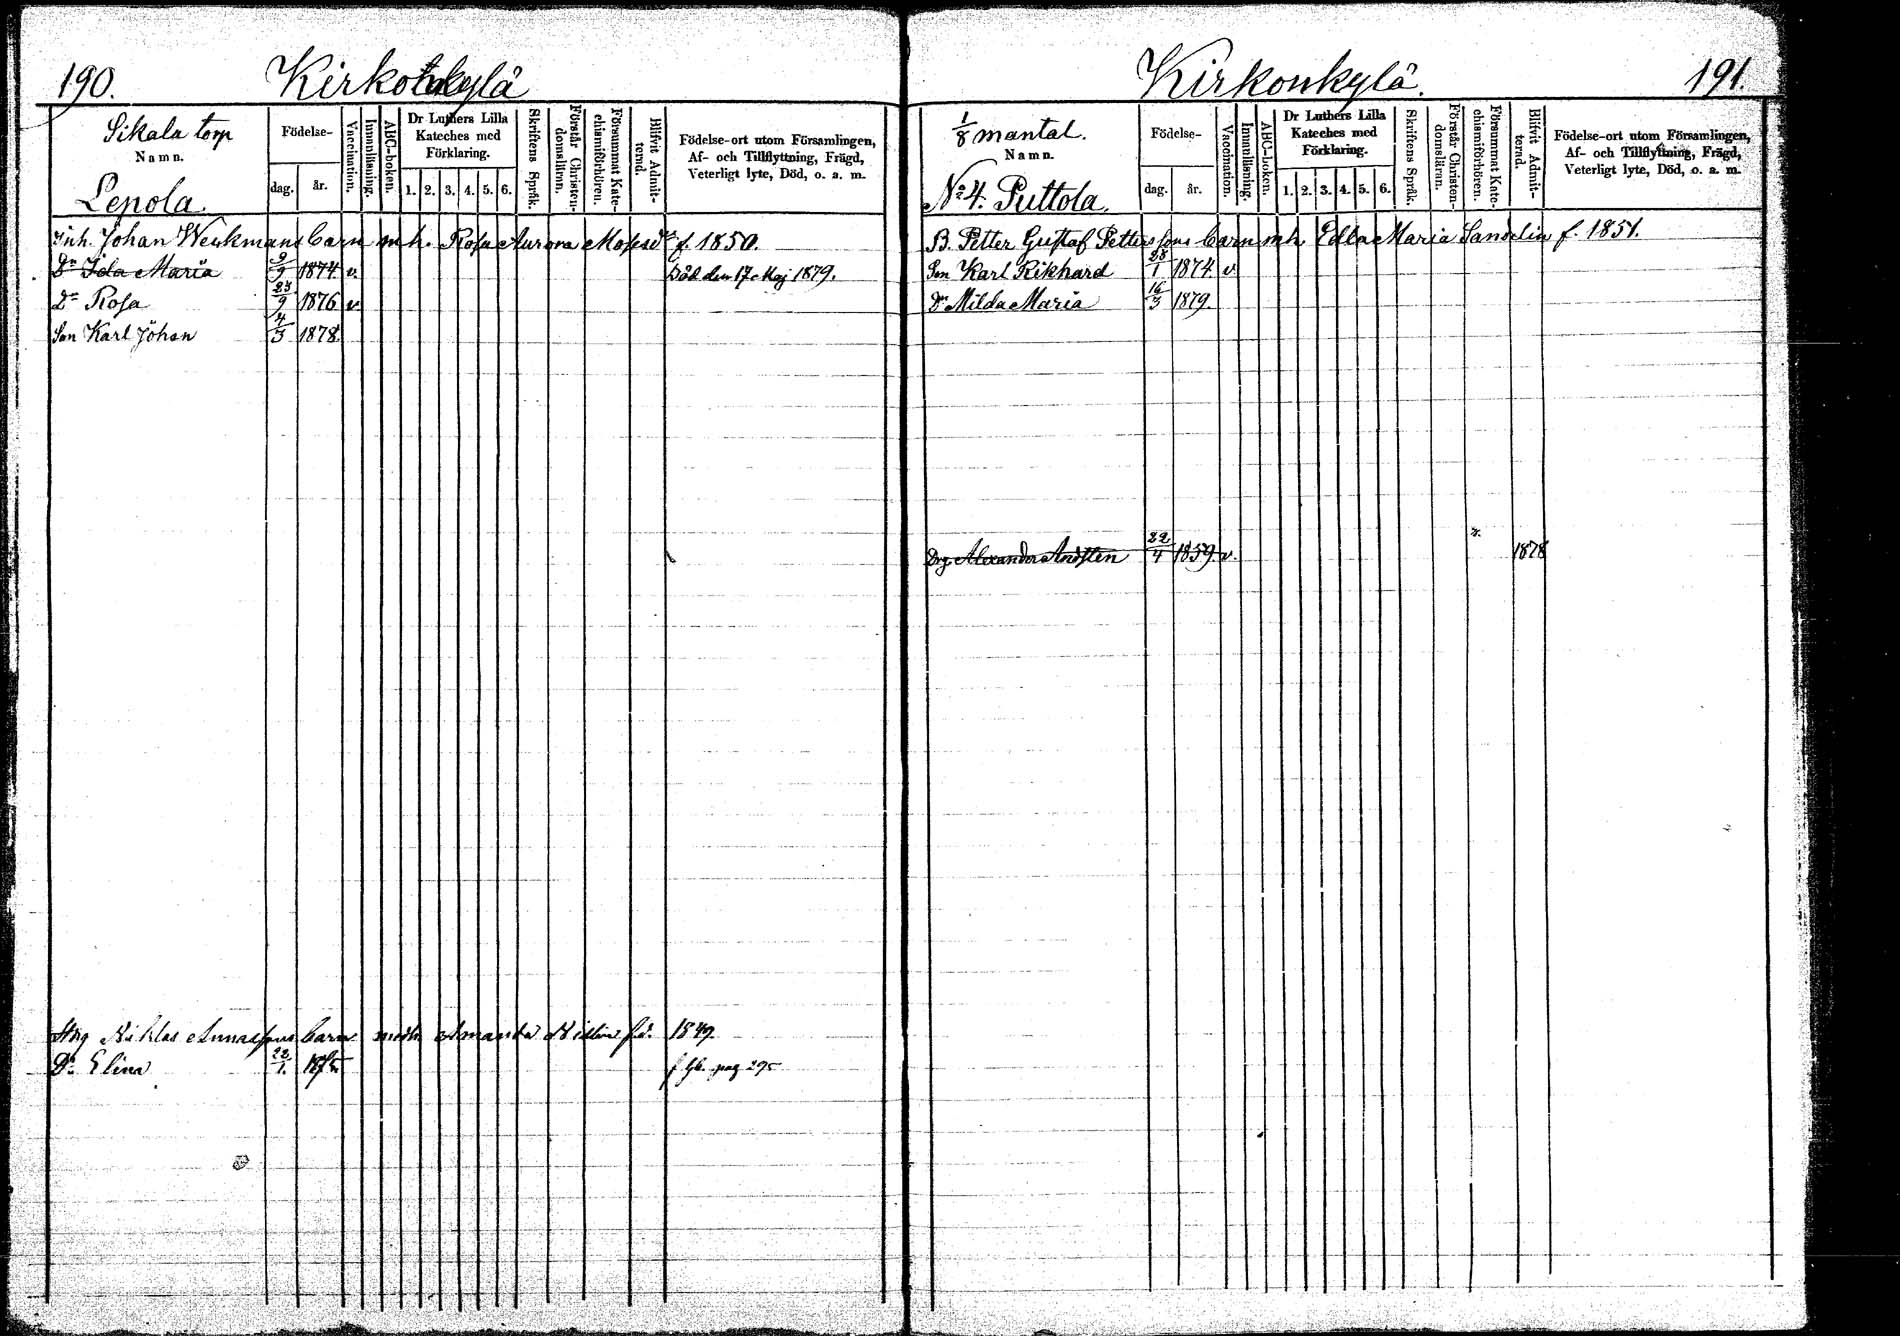 190. Kirkonkylä
Sikala torp
Namn.
Lepola.
Födelse-
dag. år.
Vaccination.
Innanläsning.
ABC-boken.
Dr Luthers Lilla Kateches med Förklaring.
1. 2. 3. 4. 5. 6.
Skriftens Språk.
Förstår Christendomsläran.
Försummat Katechismiförhören.
Blifvit Admitterad.
Födelse-ort utom Församlingen,
Af- och Tillflyttning, Frägd,
Veterligt lyte, Död, o. a. m.
Inh. Johan Werkmans barn m.h. Rosa Aurora f. 1850.
Dr Ida Maria 1874 v. Död den 17 Maj 1879.
Dr Rosa 23/9 1876 v.
Son Karl Johan 4/3 1878.
Niklas barn med h. Amanda 1849.
Dr Elina 22/1.
pag 295
Kirkonkylä. 191.
1/8 mantal.
Namn.
No 4. Puttola.
Födelse-
dag. år.
Vaccination.
Innanläsning.
ABC-boken.
Dr Luthers Lilla Kateches med Förklaring.
1. 2. 3. 4. 5. 6.
Skriftens Språk.
Förstår Christendomsläran.
Försummat Katechismiförhören.
Blifvit Admitterad.
Födelse-ort utom Församlingen,
Af- och Tillflyttning, Frägd,
Veterligt lyte, Död, o. a. m.
B. Petter Gustaf Petterssons barn m.h. Edla Maria Sandelin f. 1851.
Son Karl Rikhard 28/1 1874. v.
Dr Milda Maria 16/3 1879.
Drg. Alexander Andsten 22/4 1859. v. 1878